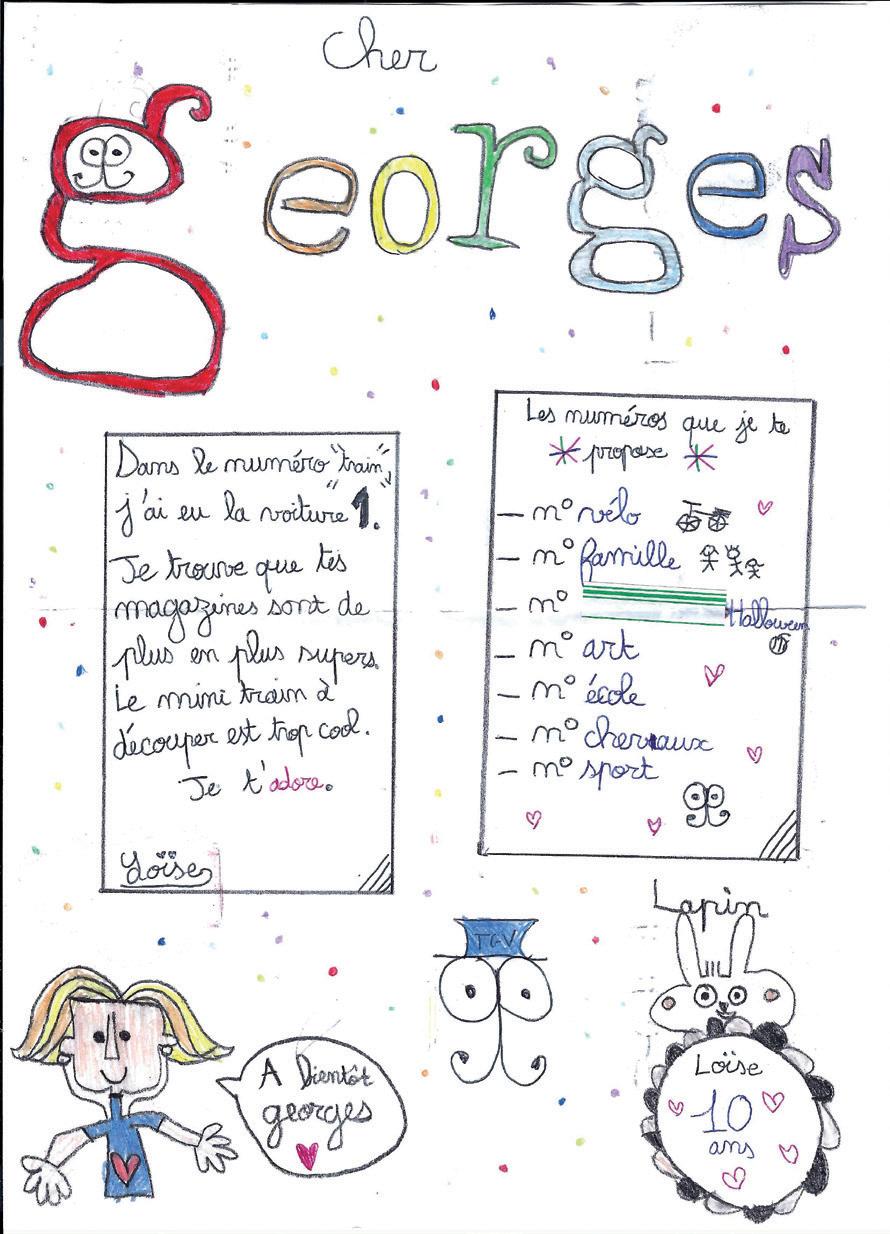 Cher
georges
Dans le numéro "train",
j'ai eu la voiture 1.
Je trouve que tes
magazines sont de
plus en plus supers.
Le mini train à
découper est trop cool.
Je t'adore.
Loïse
Les numéros que je te
propose
- n° vélo
- n° famille
- n° Halloween
- n° art
- n° école
- n° chevaux
- n° sport
TGV
Lapin
A bientôt
georges
Loïse
10
ans